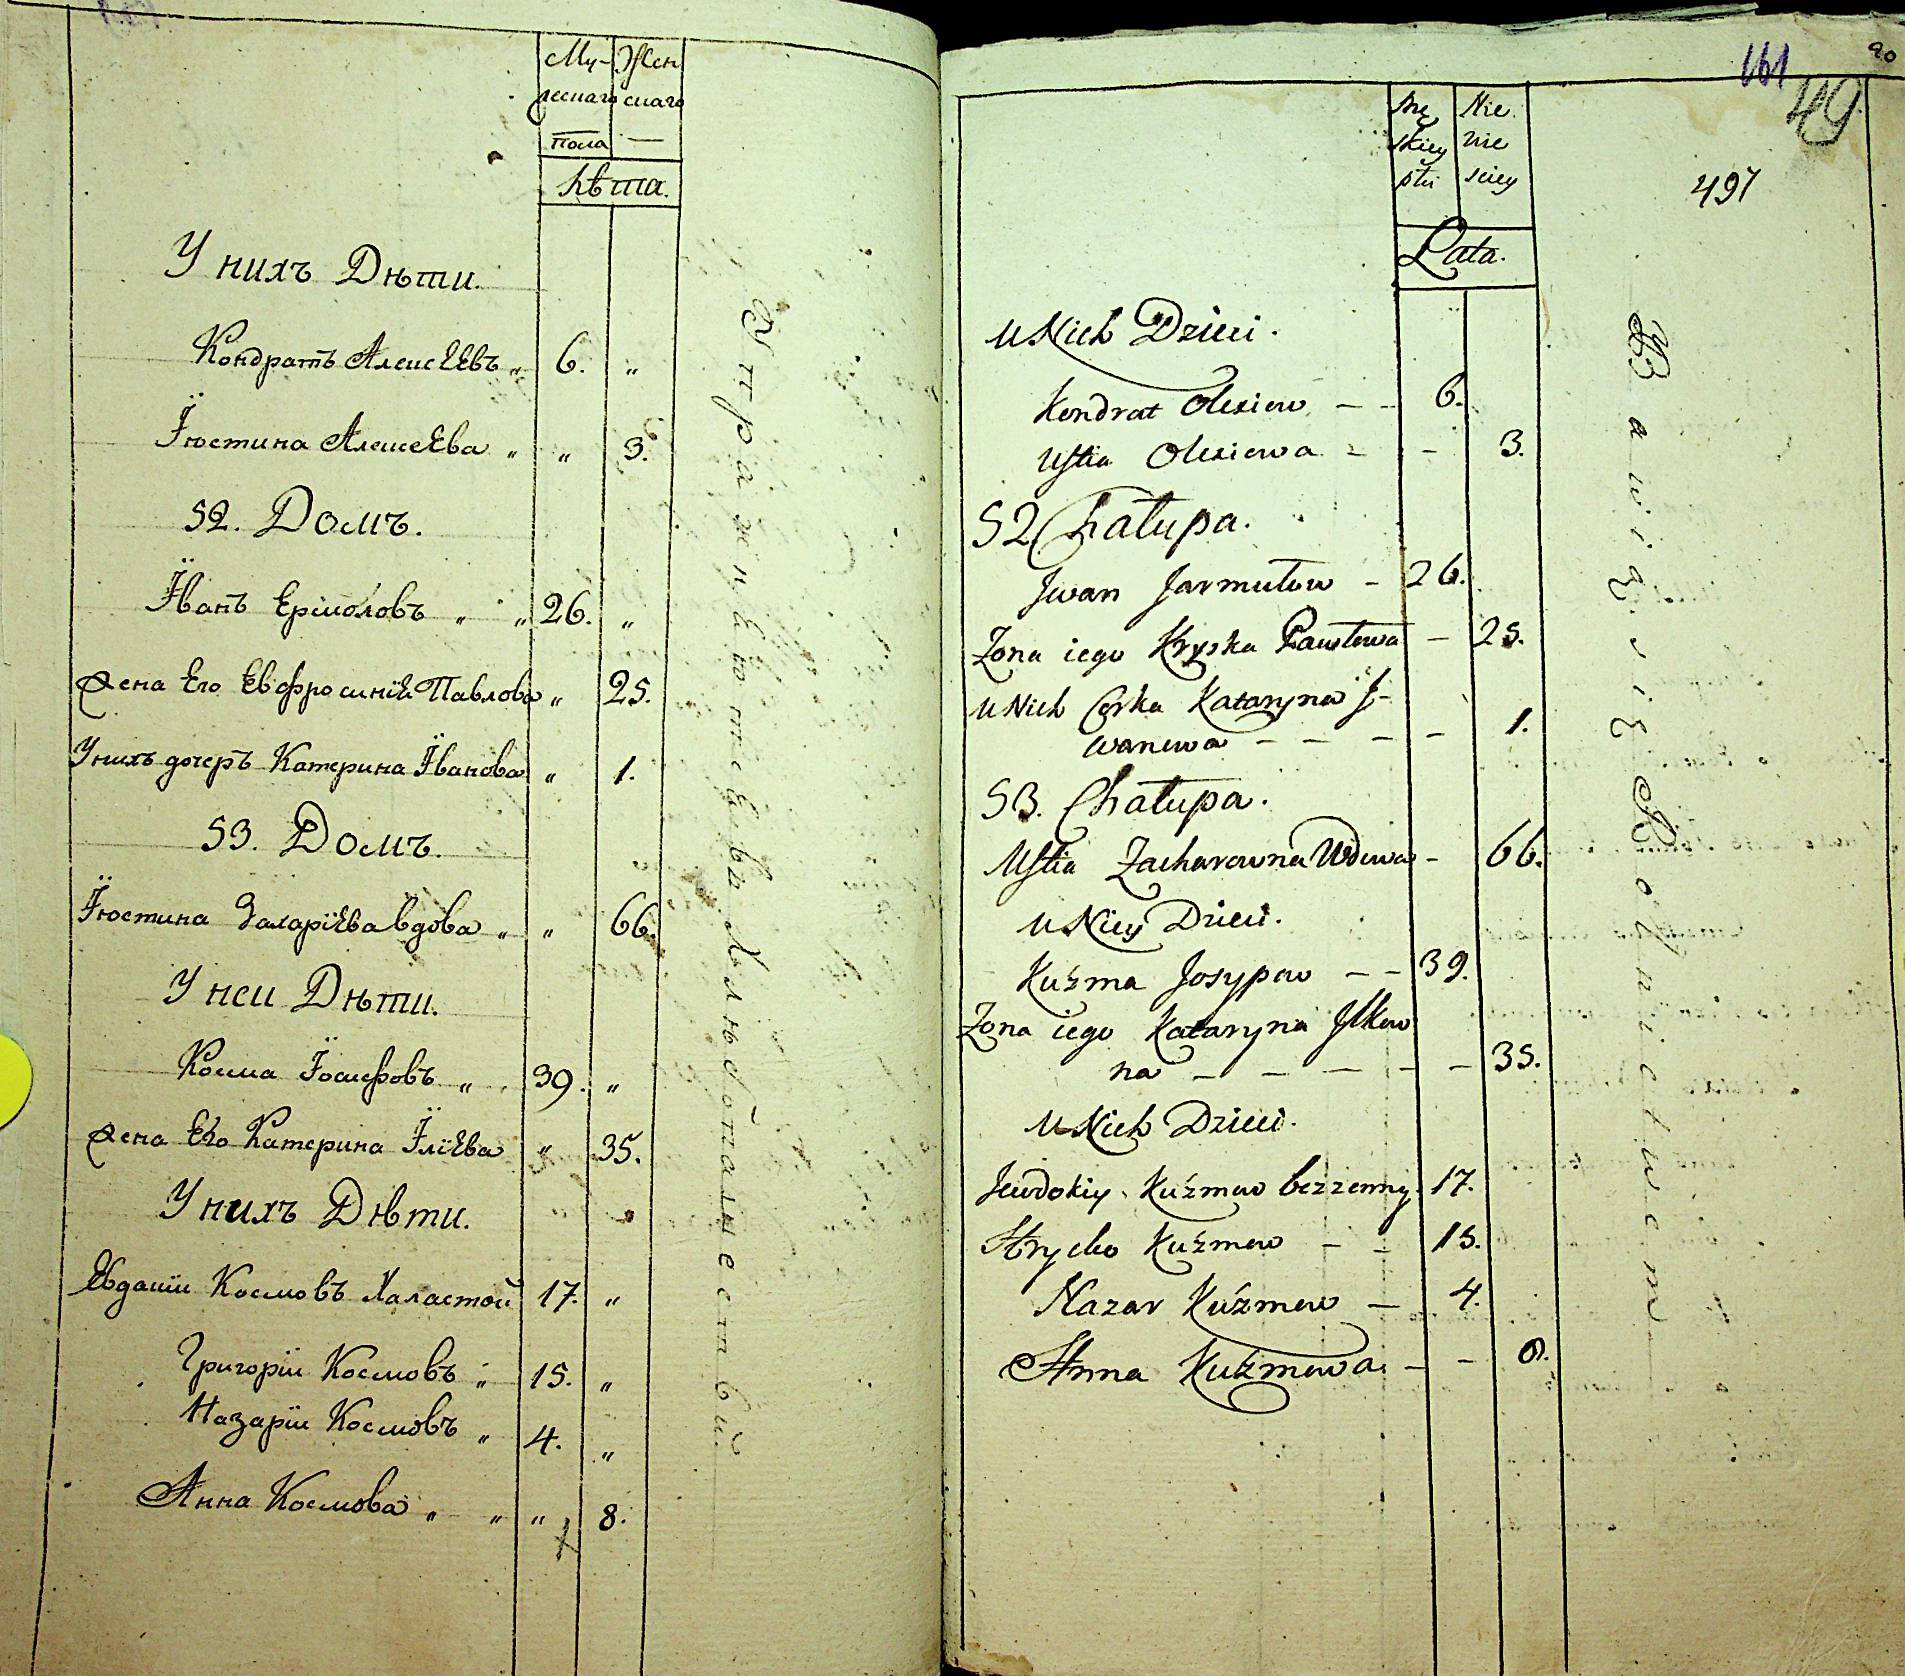 Му- Жен
жескаго скаго
пола —
Лѣта.
У нихъ Дѣти.
Кондратъ Алексеевъ „ 6. „
Іюстина Алексеева „ „ 3.
52. Домъ.
Іванъ Ермоловъ „ „ 26. „
Жена Его Евфросинія Павлова „ 25.
У нихъ дочеръ Катерина Іванова „ 1.
53. Домъ.
Іюстина Захаріева вдова „ „ 66.
У неи Дѣти.
Косма Іосифовъ „ 39. „
Жена Его Катерина Іліева „ 35.
У нихъ Дѣти.
Евдокіи Космовъ Халастой 17. „
Григоріи Космовъ „ 15. „
Назаріи Космовъ „ 4. „
Анна Космова „ „ „ 8.
Упражнѣютсѣвъ Хлѣбопашествѣ
161
90
49
497
Mę Nie.
skiey wie
płci sciey
Lata.
U Nich Dzieci.
Kondrat Olexiew — - 6.
Ustia Olexiewa - - 3.
52 Chałupa.
Jwan Jarmułow - 26.
Zona iego Kryska Pawłowa - 25.
U Nich Corka Kataryna J-
wanowa - - - - 1.
53. Chałupa.
Ustia Zacharowna Wdowa - 66.
U Niey Dzieci.
Kuźma Josypow - - 39.
Zona iego Kataryna Jlkow
na - - - - - 35.
U Nich Dzieci.
Jewdokiy Kuźmow bezzenny. 17.
Hrycko Kuźmow - - 15.
Nazar Kuźmow - 4.
Anna Kuźmowa - - 8.
Bawią się Rolnictwem